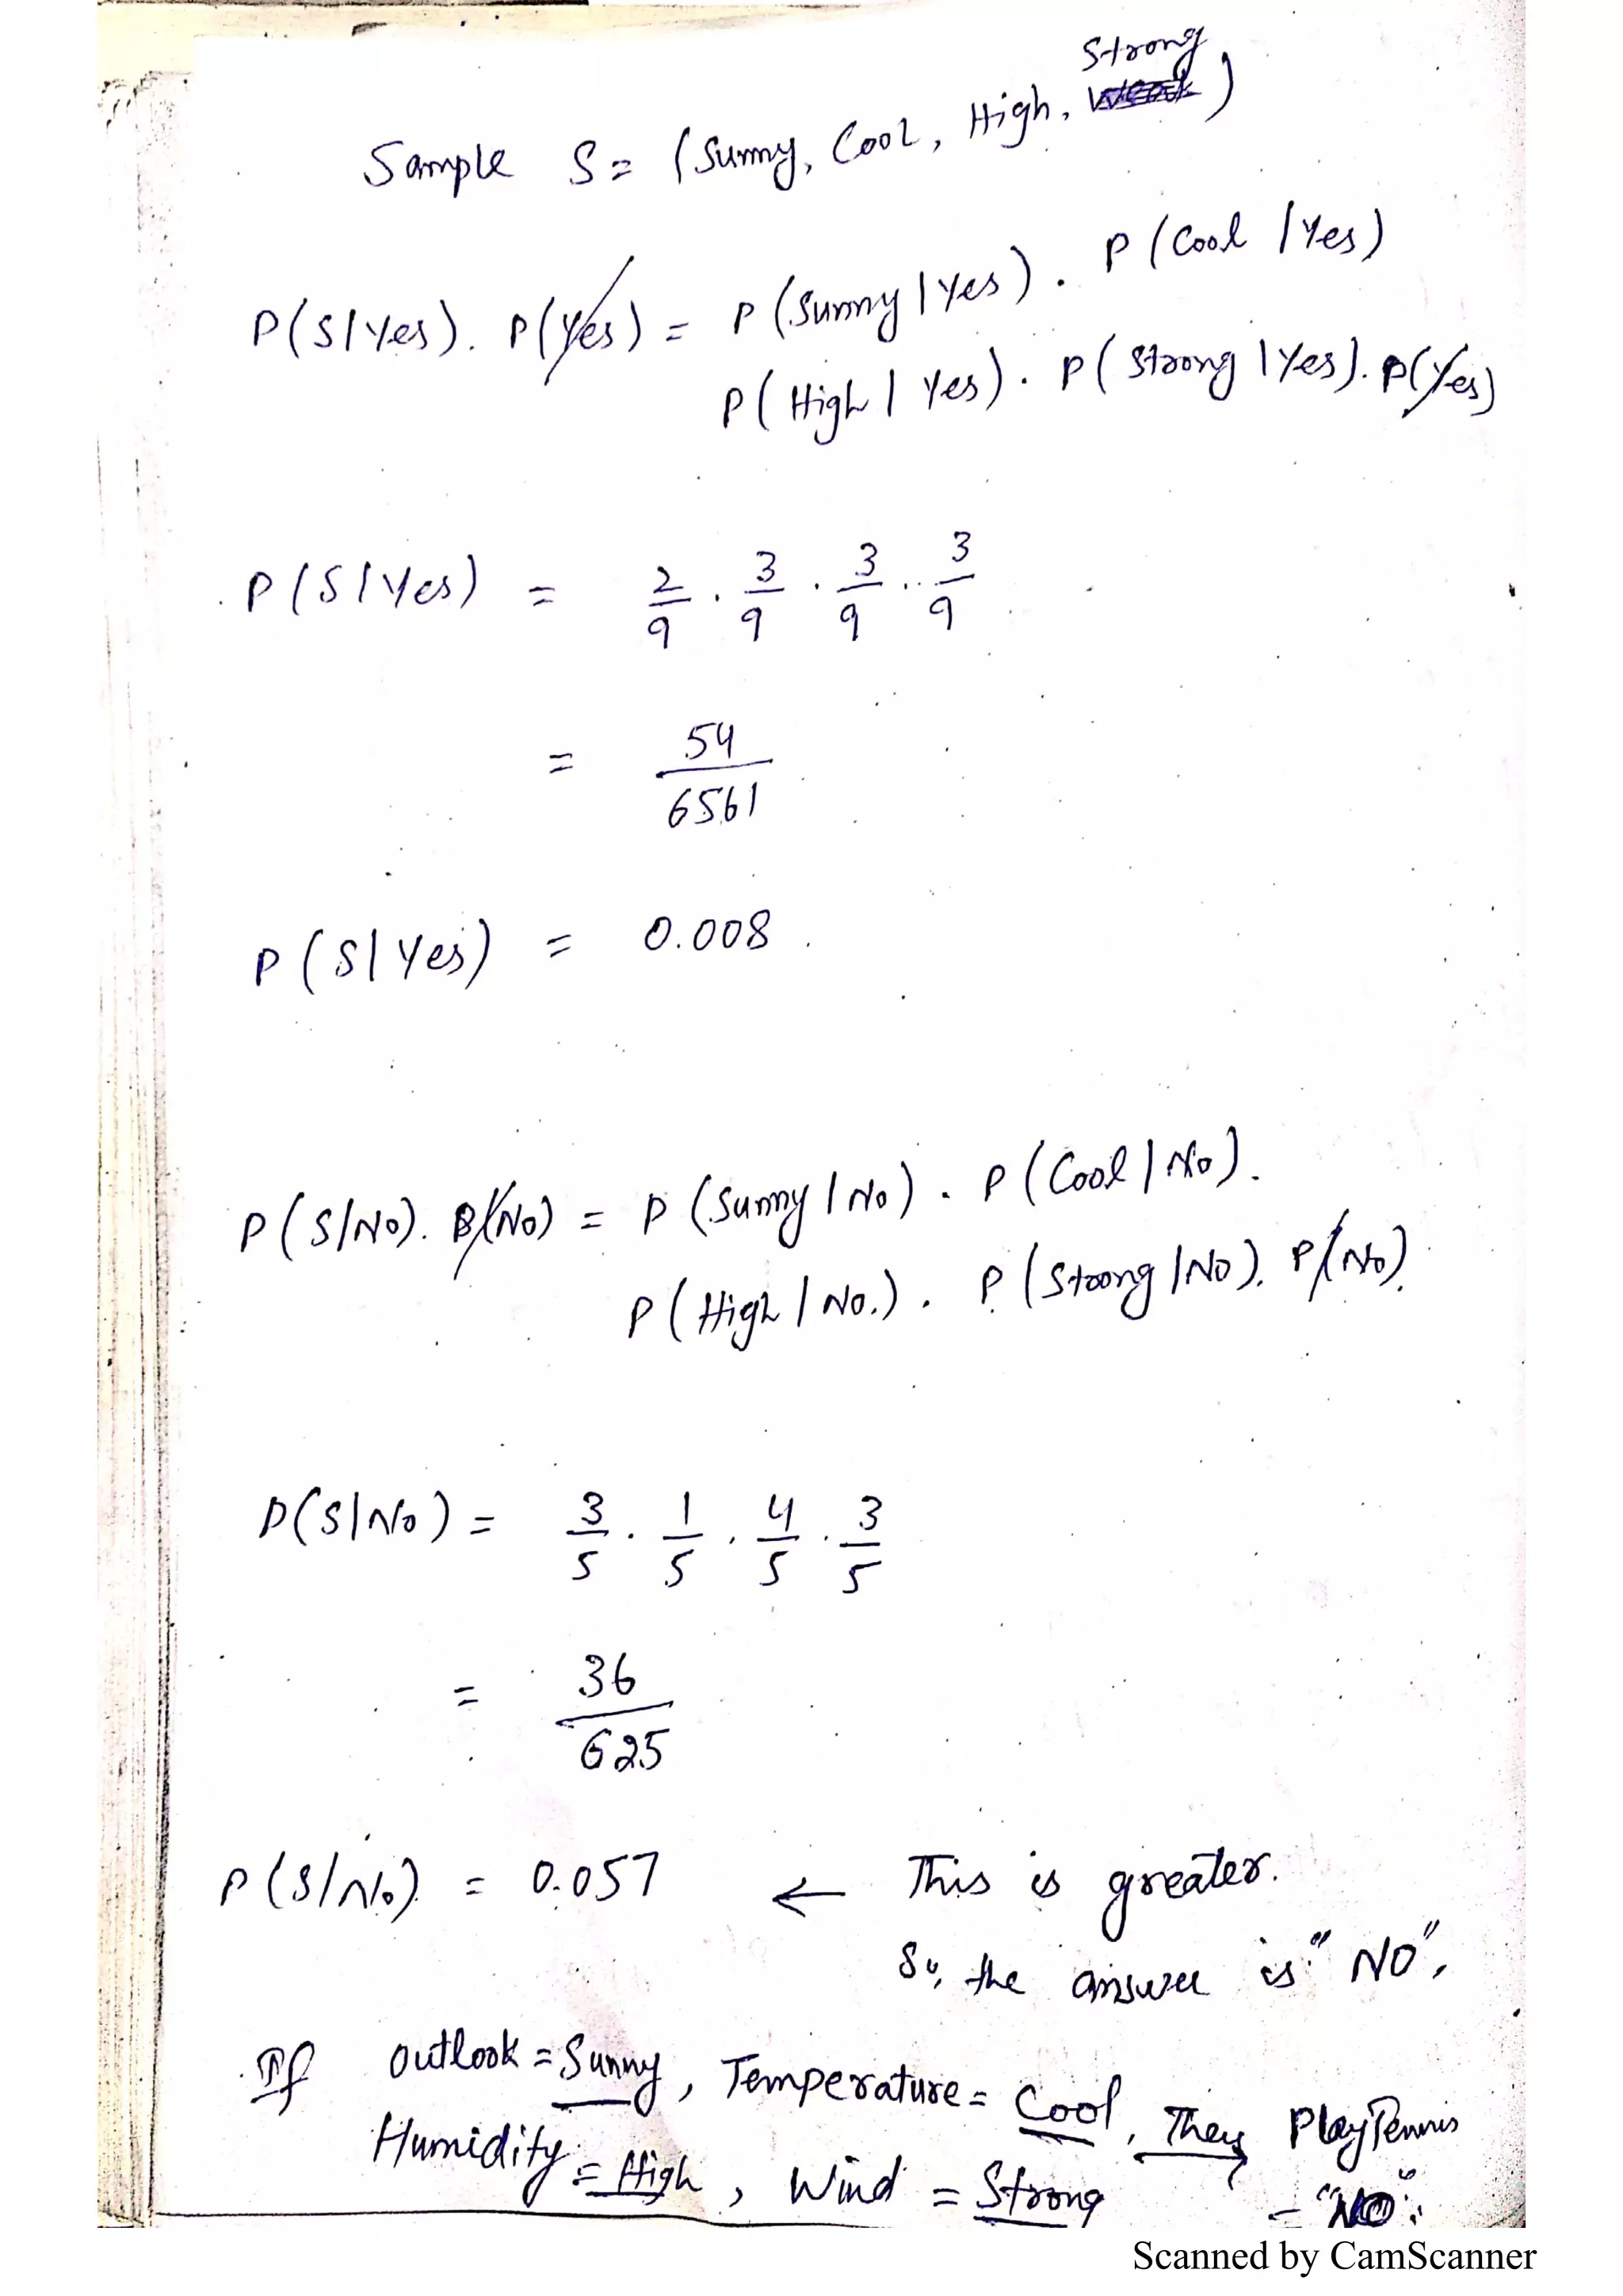 Sample S = (Sunny, Cool, High, Strong)
P(S|Yes). P(Yes) = P(Sunny|Yes). P(Cool|Yes)
P(High|Yes). P(Strong|Yes). P(Yes)
P(S|Yes) = 2/9 . 3/9 . 3/9 . 3/9
= 54/6561
P(S|Yes) = 0.008
P(S|No). P(No) = P(Sunny|No). P(Cool|No).
P(High|No.). P(Strong|No). P(No).
P(S|No) = 3/5 . 1/5 . 4/5 . 3/5
= 36/625
P(S|No) = 0.057 ← This is greater.
So, the answer is "NO",
If Outlook = Sunny, Temperature = Cool, Then PlayTennis
Humidity = High, Wind = Strong = "NO".
Scanned by CamScanner